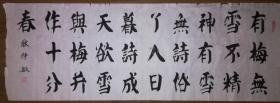 有梅無
雪不精
神有雪
無詩俗
了人日
暮詩成
天欲雪
與梅并
作十分
春